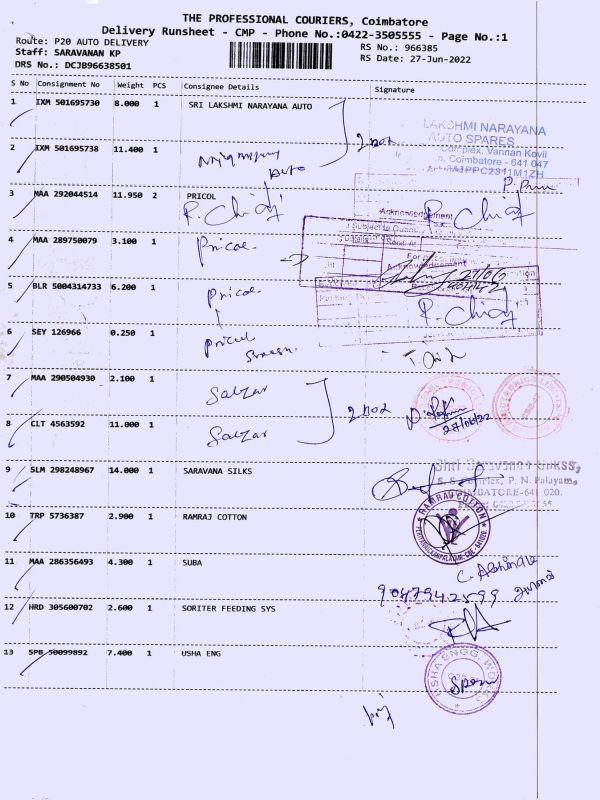 THE PROFESSIONAL COURIERS, Coimbatore
Delivery Runsheet - CMP - Phone No.:0422-3505555 - Page No.:1
Route: P20 AUTO DELIVERY
RS No.: 966385
Staff: SARAVANAN KP
RS Date: 27-Jun-2022
DRS No.: DCJB96638501
S No Consignment No Weight PCS Consignee Details Signature
1 IXM 501695730 8.000 1 SRI LAKSHMI NARAYANA AUTO
LAKSHMI NARAYANA
AUTO SPARES
Complex, Vannan Kovil
Coimbatore - 641 047
2 IXM 501695738 11.400 1
Auto
3 MAA 292044514 11.950 2 PRICOL
Acknowledgement
4 MAA 289750079 3.100 1 Pricol
Acknowledgement
5 BLR 5004314733 6.200 1 Pricol
6 SEY 126966 0.250 1 Pricol
7 MAA 290504930 2.100 1 Salzar
8 CLT 4563592 11.000 1 Salzar
27/06/22
9 SLM 298248967 14.000 1 SARAVANA SILKS
P. N. Palayam,
COIMBATORE-641 020.
10 TRP 5736387 2.900 1 RAMRAJ COTTON
RAMRAJ COTTON
11 MAA 286356493 4.300 1 SUBA
9047942599
12 HRD 305600702 2.600 1 SORITER FEEDING SYS
13 SPB 50099892 7.400 1 USHA ENG
USHA ENGG WORKS